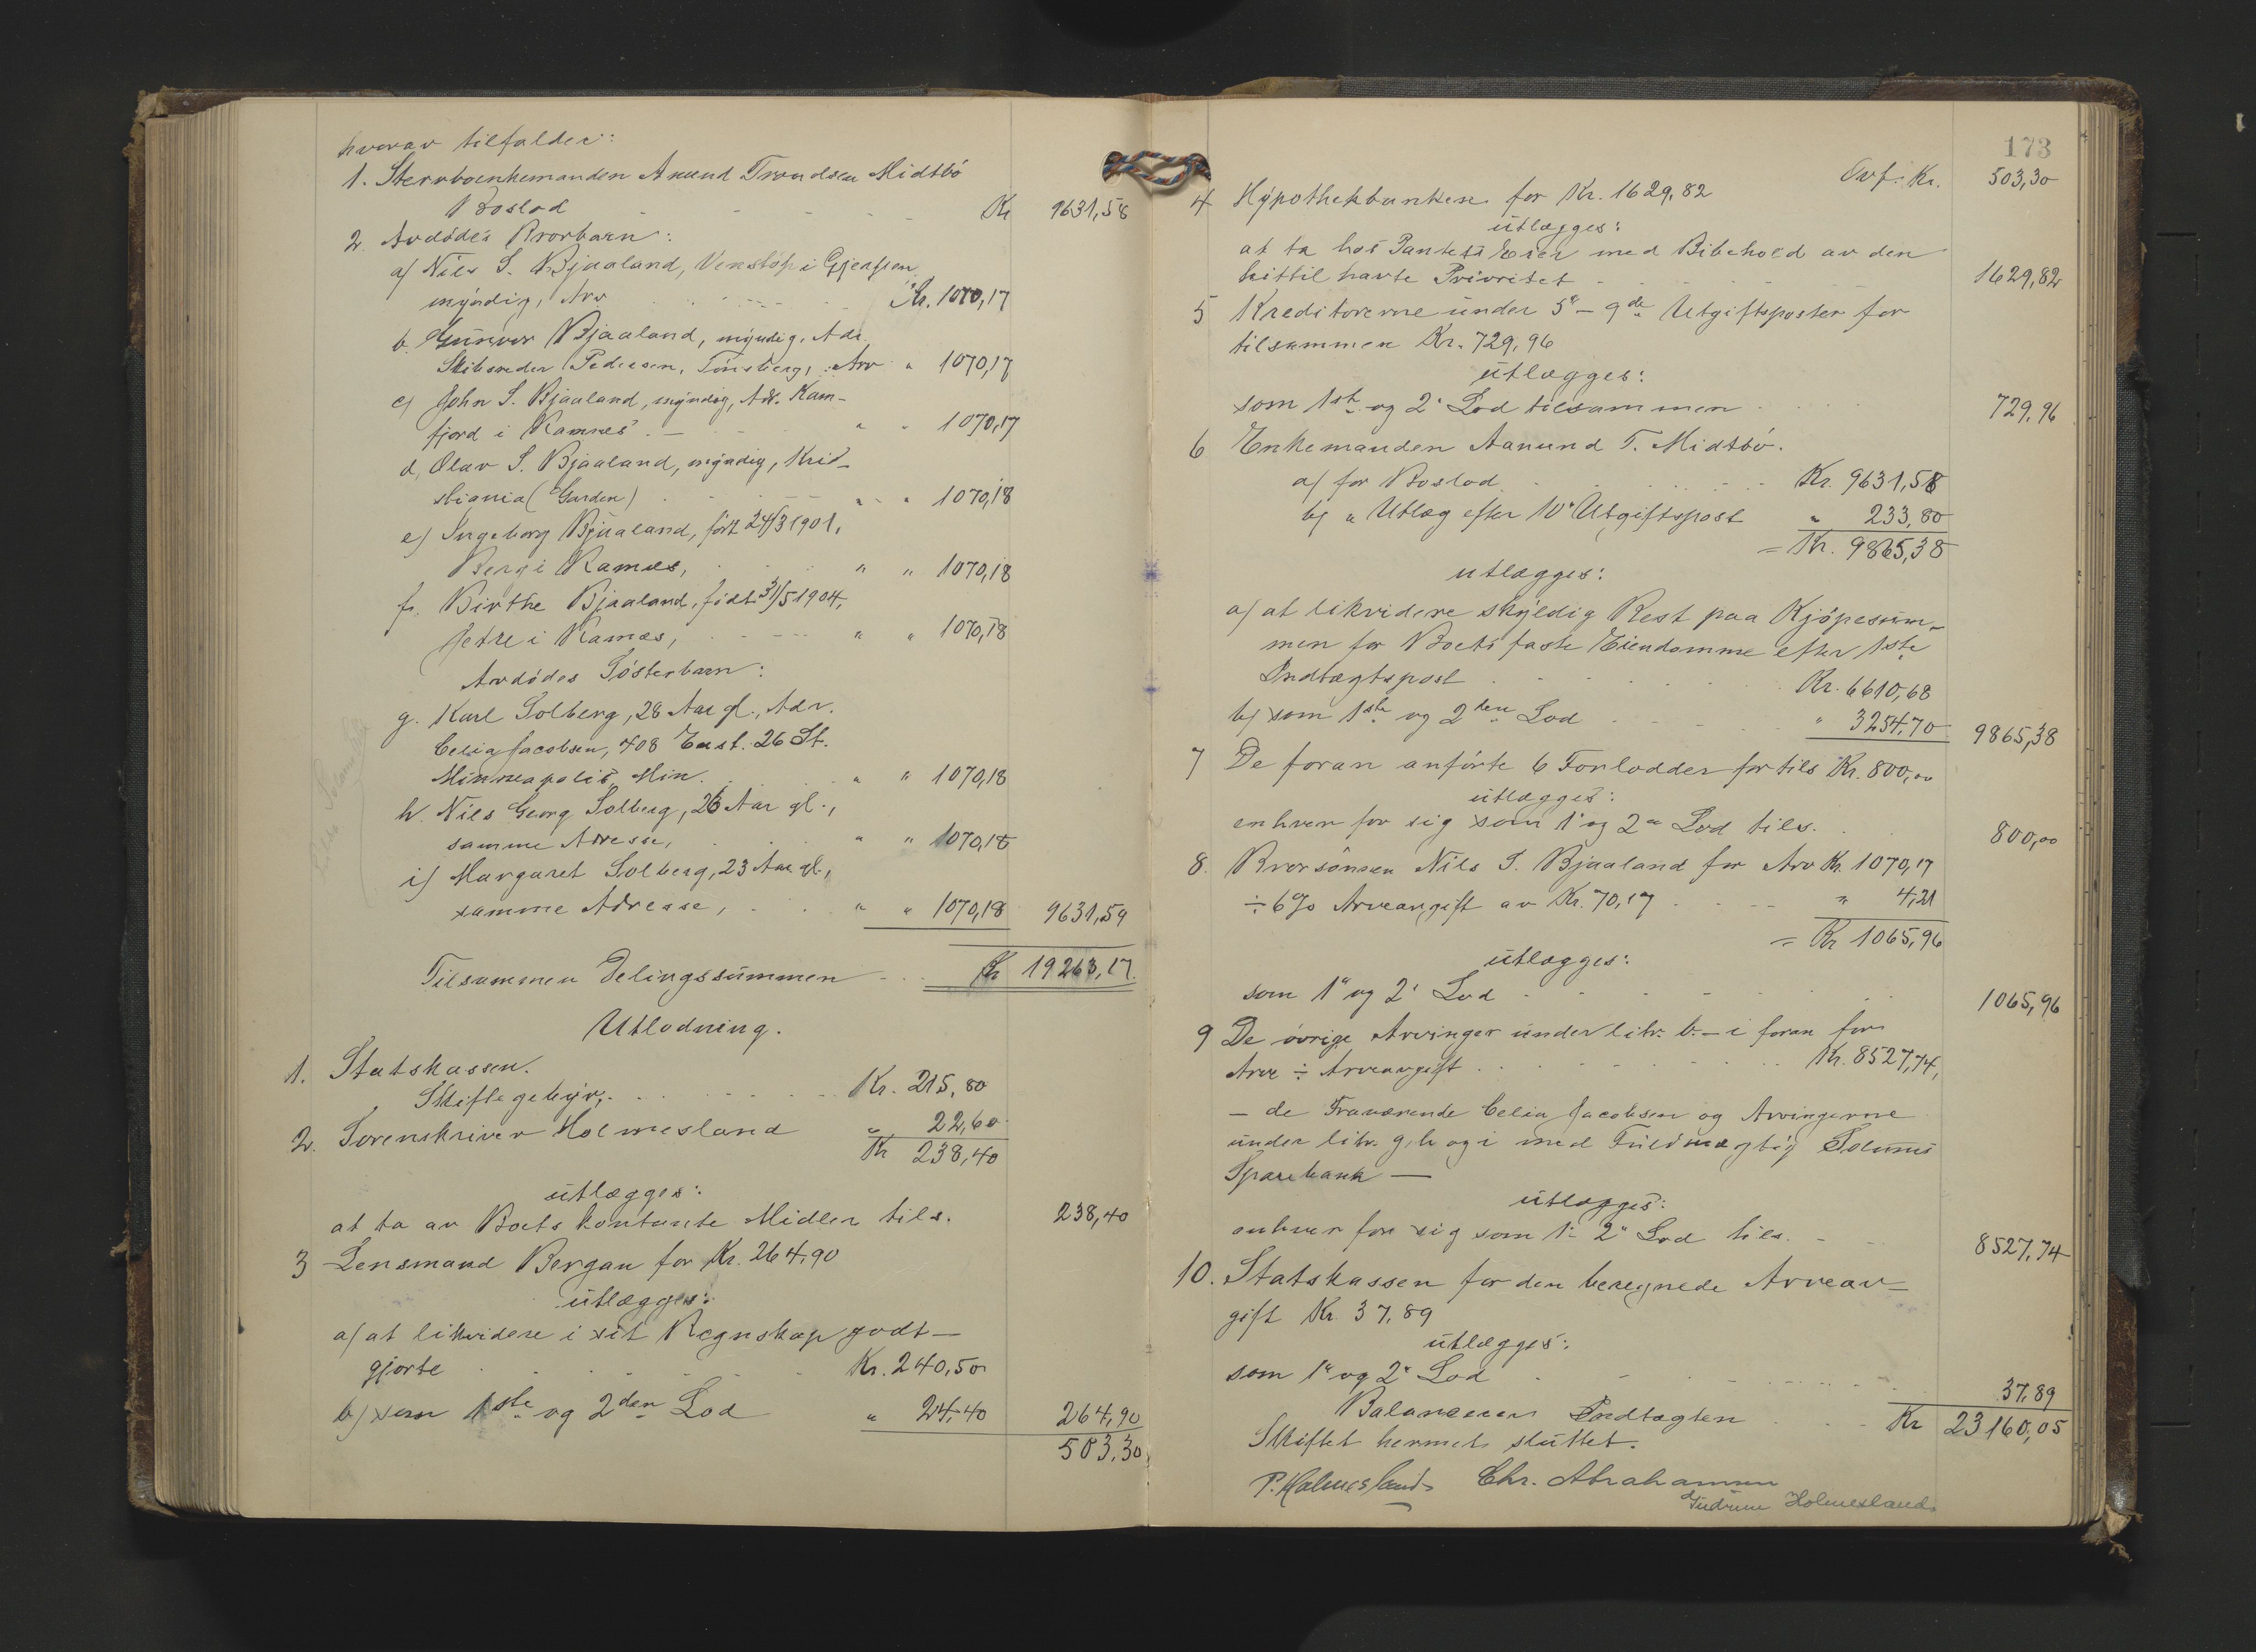 hvorav tilfalder:
1. Stervboenkemanden Anund Trondsen Midtbö
Boslod Kr 9631,58
2. Avdödes Brorbarn:
a) Nils S. Bjaaland, Venstöp i Gjerpen
myndig, Arv Kr. 1070,17
b. Gunvor Bjaaland, myndig, Adr.
Skibsreder Pedersen, Tönsberg, Arv " 1070,17
c) John S. Bjaaland, myndig, Adr. Kam-
fjord i Ramnes. " " 1070,17
d, Olav S. Bjaaland, myndig, Kri-
stiania (Garden) " " 1070,18
e) Ingeborg Bjaaland, född 24/3 1901,
Berg i Ramnes, " " 1070,18
f. Birthe Bjaaland, födt 31/5 1904,
Jetre i Ramnes, " " 1070,18
Avdödes Sösterbarn:
g. Karl Solberg, 28 Aar gl., Adr.
Celia Jacobsen, 408 East. 26 St.
Minneapolis, Min. " " 1070,18
h. Nils Georg Solberg, 26 Aar gl.,
samme Adresse, " " 1070,18
i) Margaret Solberg, 23 Aar gl.,
samme Adresse, " " 1070,18 9631,59
Tilsammen Delingssummen Kr 19263,17.
Utlodning.
1. Statskassen.
Skiftegebyr, Kr. 215,80
2. Sorenskriver Holmesland " 22,60
Kr 238,40
utlægges:
at ta av Boets kontante Midler tils. 238,40
3 Lensmand Bergan for Kr. 264,90
utlægges:
a) at likvidere i sit Regnskap godt-
gjorte Kr. 240,50
b) som 1ste og 2den Lod " 24,40 264,90
503,30
173
Ovf. Kr. 503,30
4 Hypothekbanken for Kr. 1629,82
utlægges:
at ta hos Pantets Eier med Bibehold av den
hittil havte Prioritet 1629,82
5 Kreditorerne under 5te - 9de Utgiftsposter for
tilsammen Kr. 729,96
utlægges:
som 1ste og 2. Lod tilsammen 729,96
6 Enkemanden Aanund T. Midtbö.
a) for Boslod Kr. 9631,58
b) " Utlæg efter 10. Utgiftspost " 233,80
= Kr. 9865,38
utlægges:
a) at likvidere skyldig Rest paa Kjöpesum-
men for Boets faste Eiendomme efter 1ste
Indtægtspost Kr. 6610,68
b) som 1ste og 2den Lod " 3254,70 9865,38
7 De foran anförte 6 Forlodder for tils Kr. 800,00
utlægges:
enhver for sig som 1. og 2. Lod tils. 800,00
8. Brorsönnen Nils S. Bjaaland for Arv Kr. 1070,17
÷ 6% Arveavgift av Kr. 70,17 " 4,21
= Kr 1065,96
utlægges:
som 1. og 2. Lod 1065,96
9 De övrige Arvinger under litr. b - i foran for
Arv ÷ Arveavgift Kr. 8527,74,
- de Fraværende Celia Jacobsen og Arvingerne
under litr. g, h og i med Fuldmægtig Solums
Sparebank -
utlægges:
enhver for sig som 1. 2. Lod tils. 8527,74
10. Statskassen for den beregnede Arveav-
gift Kr. 37,89
utlægges:
som 1. og 2. Lod 37,89
Balancerer Indtægten Kr 23160,05
Skiftet hermed sluttet.
P. Holmesland Chr. Abrahamsen
Gudrun Holmesland